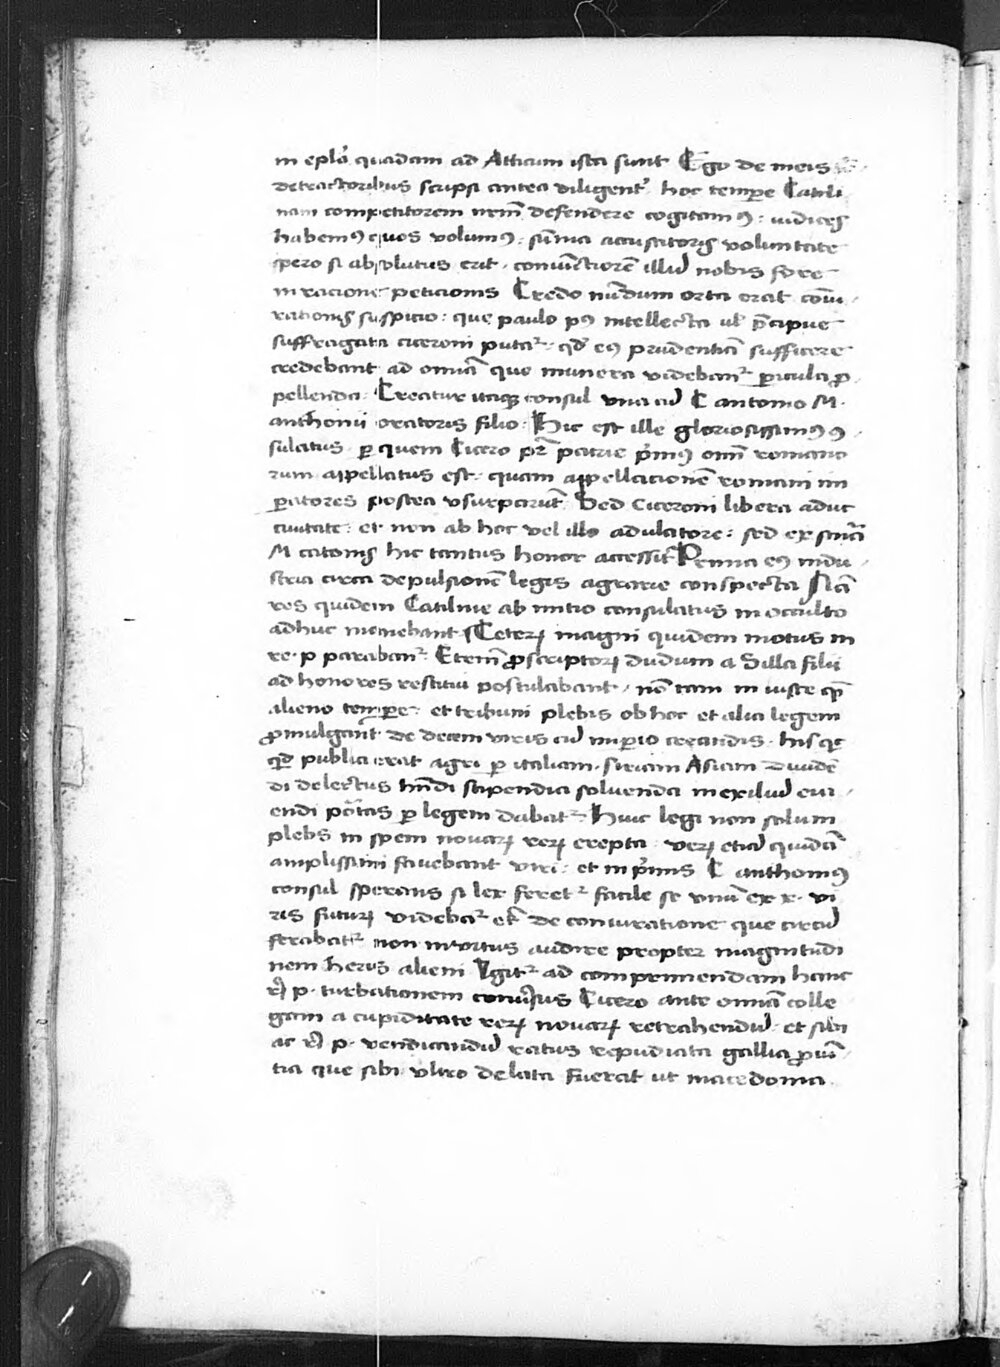 in eplā quadam ad Atticum ista sunt Ego de meis
detractoribus scripsi antea diligentˀ hoc tempe Catili
nam competitorem nrm̄ defendere cogitamꝰ : iudices
habemꝰ quos volumꝰ : sūma accusatoris voluntate
spero si absolutus erit . coniūctiorē illū nobis fore
in racione peticionis Credo nōdum orta erat coniu
rationis suspicio : que paulo pꝰ intellecta vl' p̄cipue
suffragata ciceroni putatˀ : qd̄ eiꝰ prudentiā sufficere
credebant ad omīa que munera videbanˀ pericula ꝓ
pellenda . Creatur itaqꝫ consul vna cū C antonio M .
anthonii oratoris filio : Hic est ille gloriosissimꝰ ꝯ
sulatus . ꝑ quem Cicero pr̄ patrie p̄mꝰ om̄ romano
rum appellatus est . quam appellacionē romani im
ꝑatores postea vsurparūt Sed Ciceroni libera aduc
ciuitate : et non ab hoc vel illo adulatore : sed ex snīa
M catonis hic tantus honor accessit Prima eiꝰ indu
stria circa depulsionē legis agrarie conspecta Nā
res quidem Catiline ab initio consulatus in occulto
adhuc manebant Ceteꝝ magni quidem motus in
re . p parabanˀ : Etenī ꝓscriptoꝝ dudum a Silla filii
ad honores restitui postulabant . nō tam iniuste qꝫ
alieno tempe : et tribuni plebis ob hoc et alia legem
ꝓmulgant de decem viris cū imꝑio creandis . hisqꝫ
qd̄ publici erat agri ꝑ italiam . siriam Asiam diuidē
di delectus hn̄di stipendia soluenda in exiliū eici
endi ptās ꝑ legem dabatˀ : Huic legi non solum
plebs in spem nouaꝝ reꝝ erepta . veꝝ etiā quidā
amplissimi fauebant viri : et inp̄mis C anthonius
consul sperans si lex feretˀ facile se vnū ex x . vi
ris futuꝝ videbaˀ et̄ de coniuratione que circū
ferabatˀ non inuitus audire propter magnitudi
nem heris alieni Igitˀ ad comprimendam hanc
r̄ p . turbationem conūsus Cicero ante omīa colle
gam a cupiditate reꝝ nouaꝝ retrahendū . et sibi
ac r̄ p . vendicandū ratus repudiata gallia ꝓuī
tia que sibi vltro delata fuerat ut macedonia .